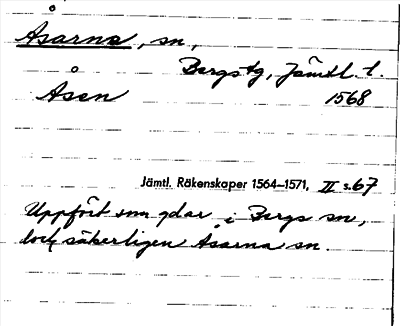 Åsarna, sn,
Bergs tg, Jämtl. l.
Åsen 1568
Jämtl. Räkenskaper 1564–1571, II s. 67
Uppfört som gdar i Bergs sn,
dock säkerligen Åsarna sn.